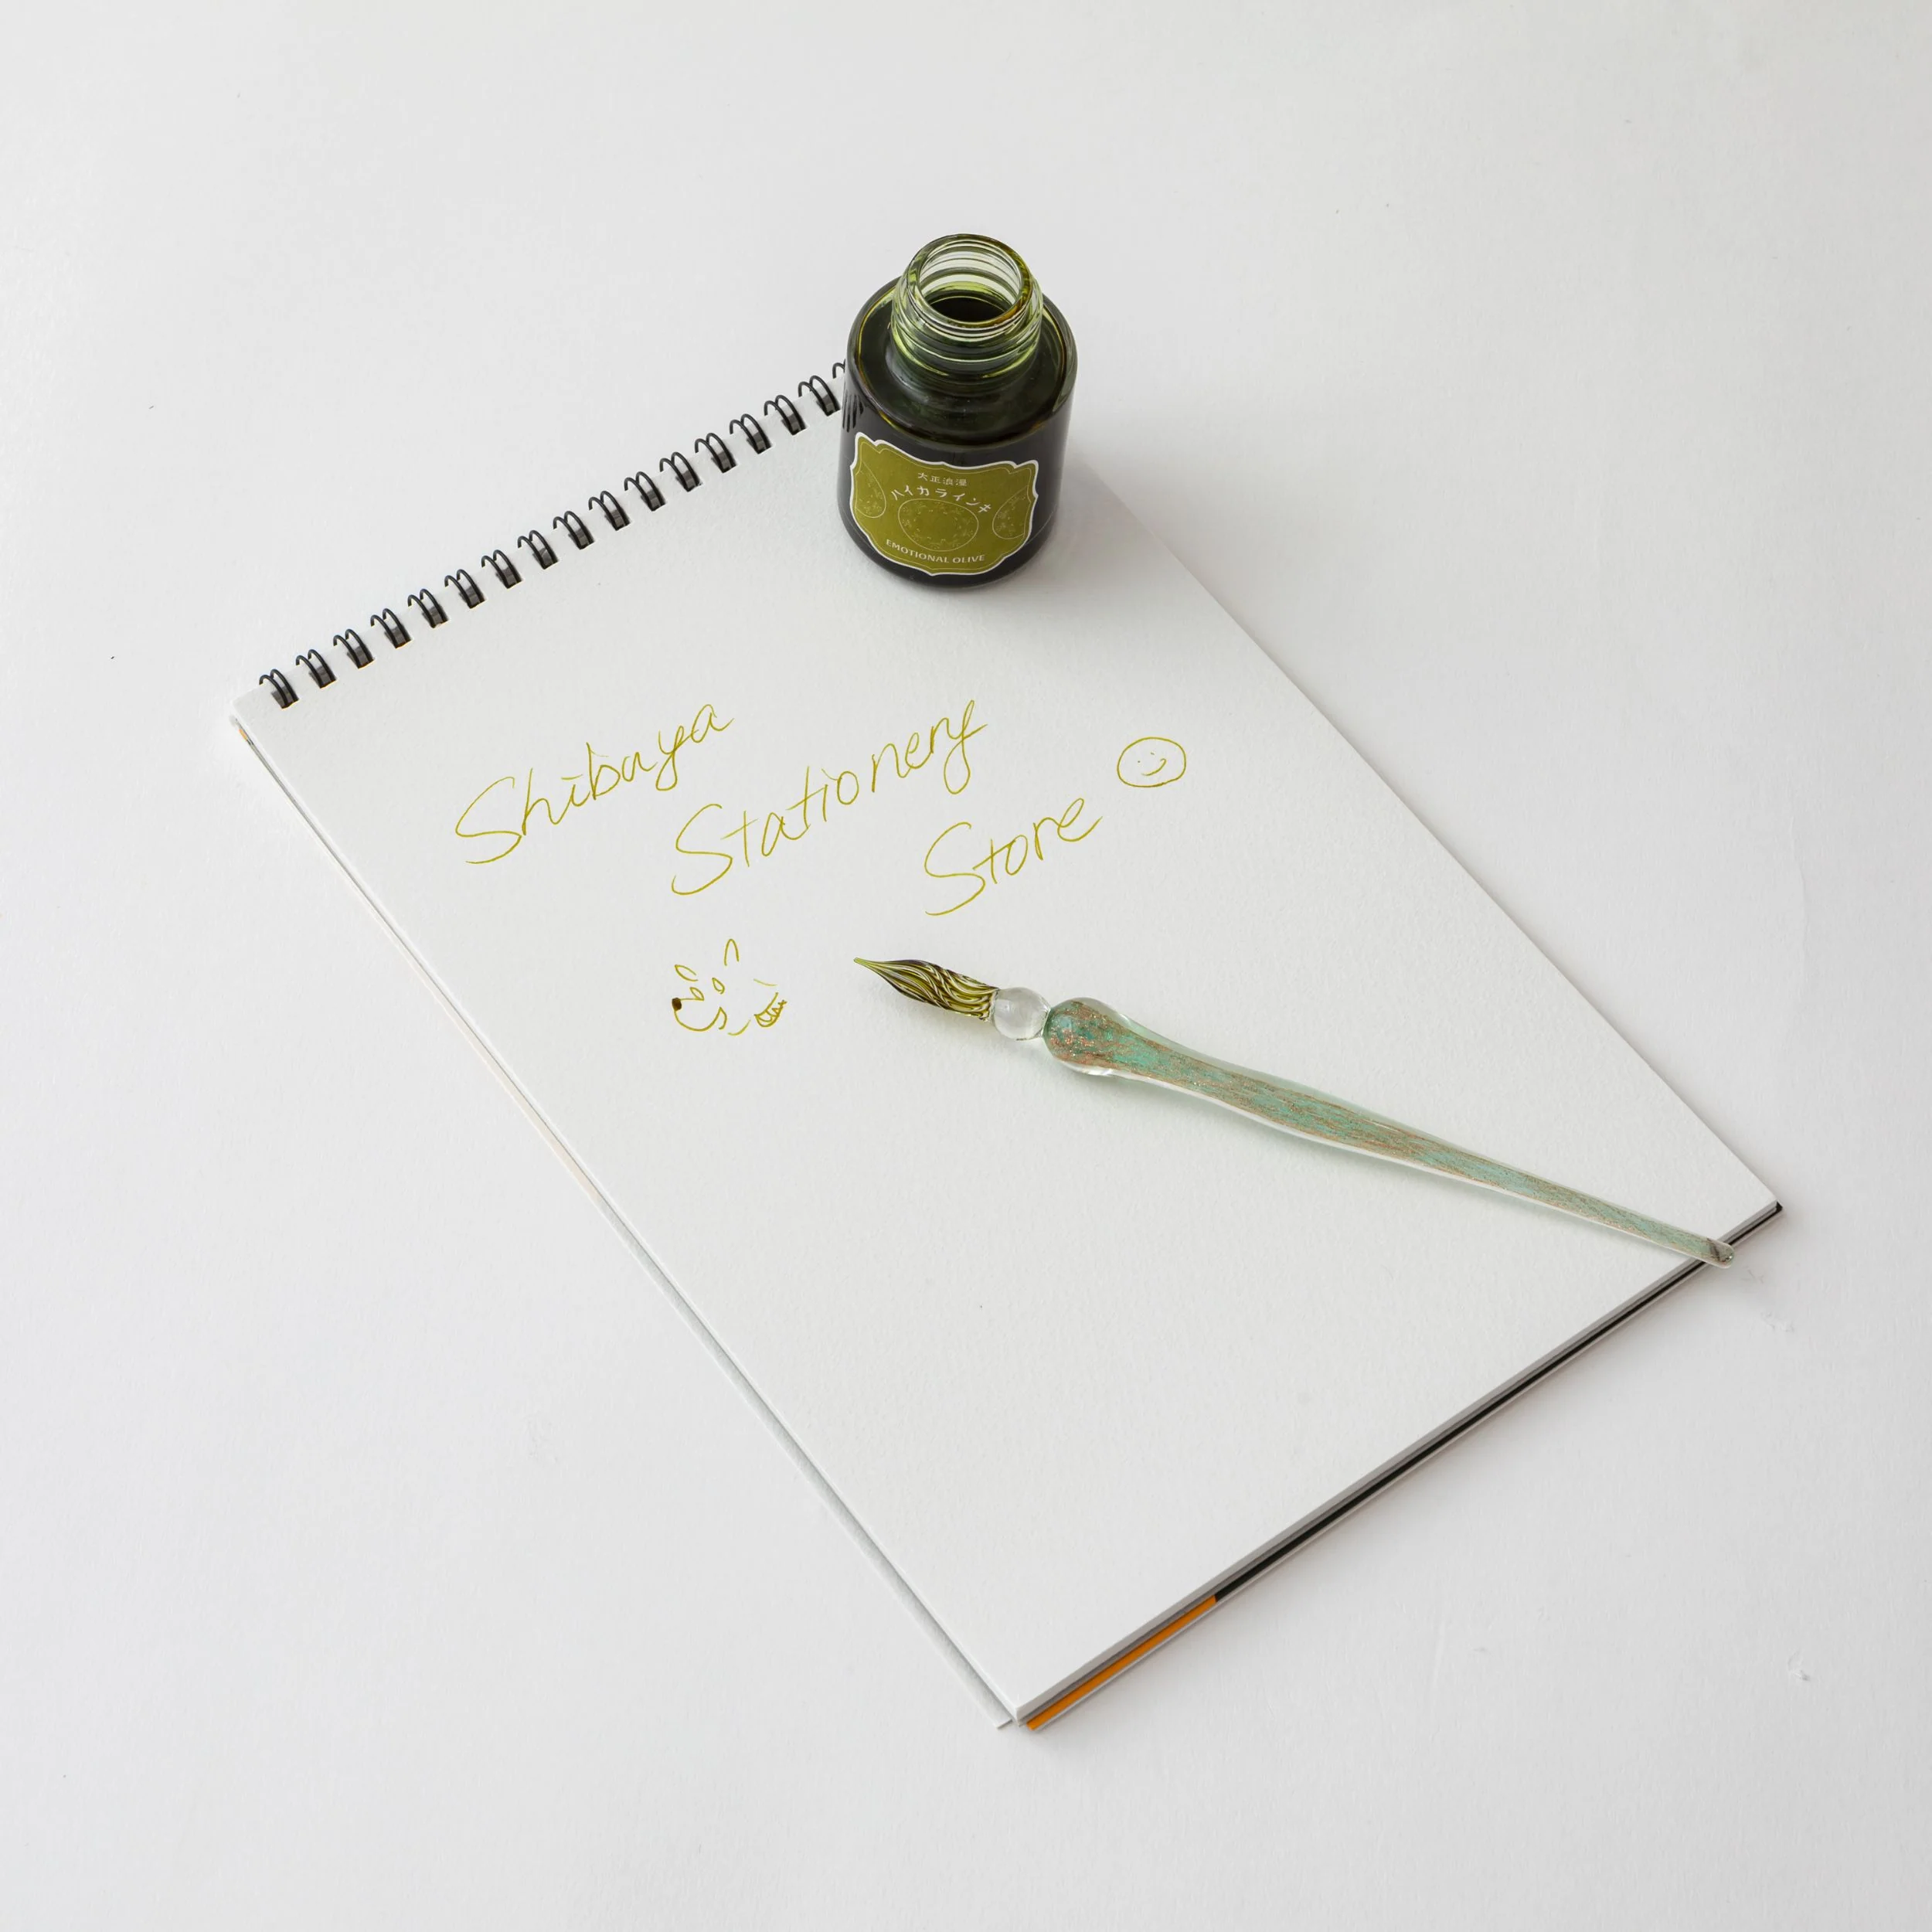 大正浪漫
ハイカラインキ
EMOTIONAL OLIVE
Shibuya
Stationery
Store